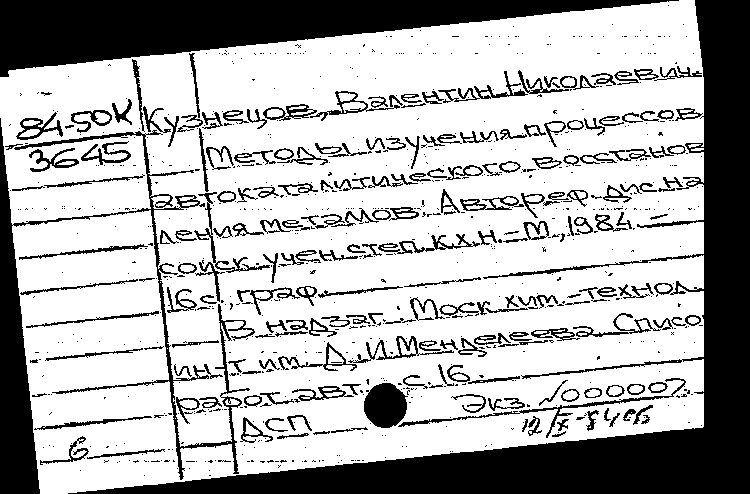 84-50К Кузнецов, Валентин Николаевич.
3645 Методы изучения процессов
автокаталитического восстанов
ления металлов: Автореф. дис. на
соиск. учен. степ. к.х.н. - М., 1984. -
16 с., граф.
В надзаг.: Моск. хим.-технол.
ин-т им. Д.И. Менделеева. Списо
работ авт.: с. 16.
Экз. №000007.
ДСП
6